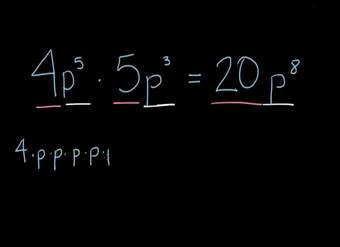 4p⁵ · 5p³ = 20p⁸
4·p·p·p·p·